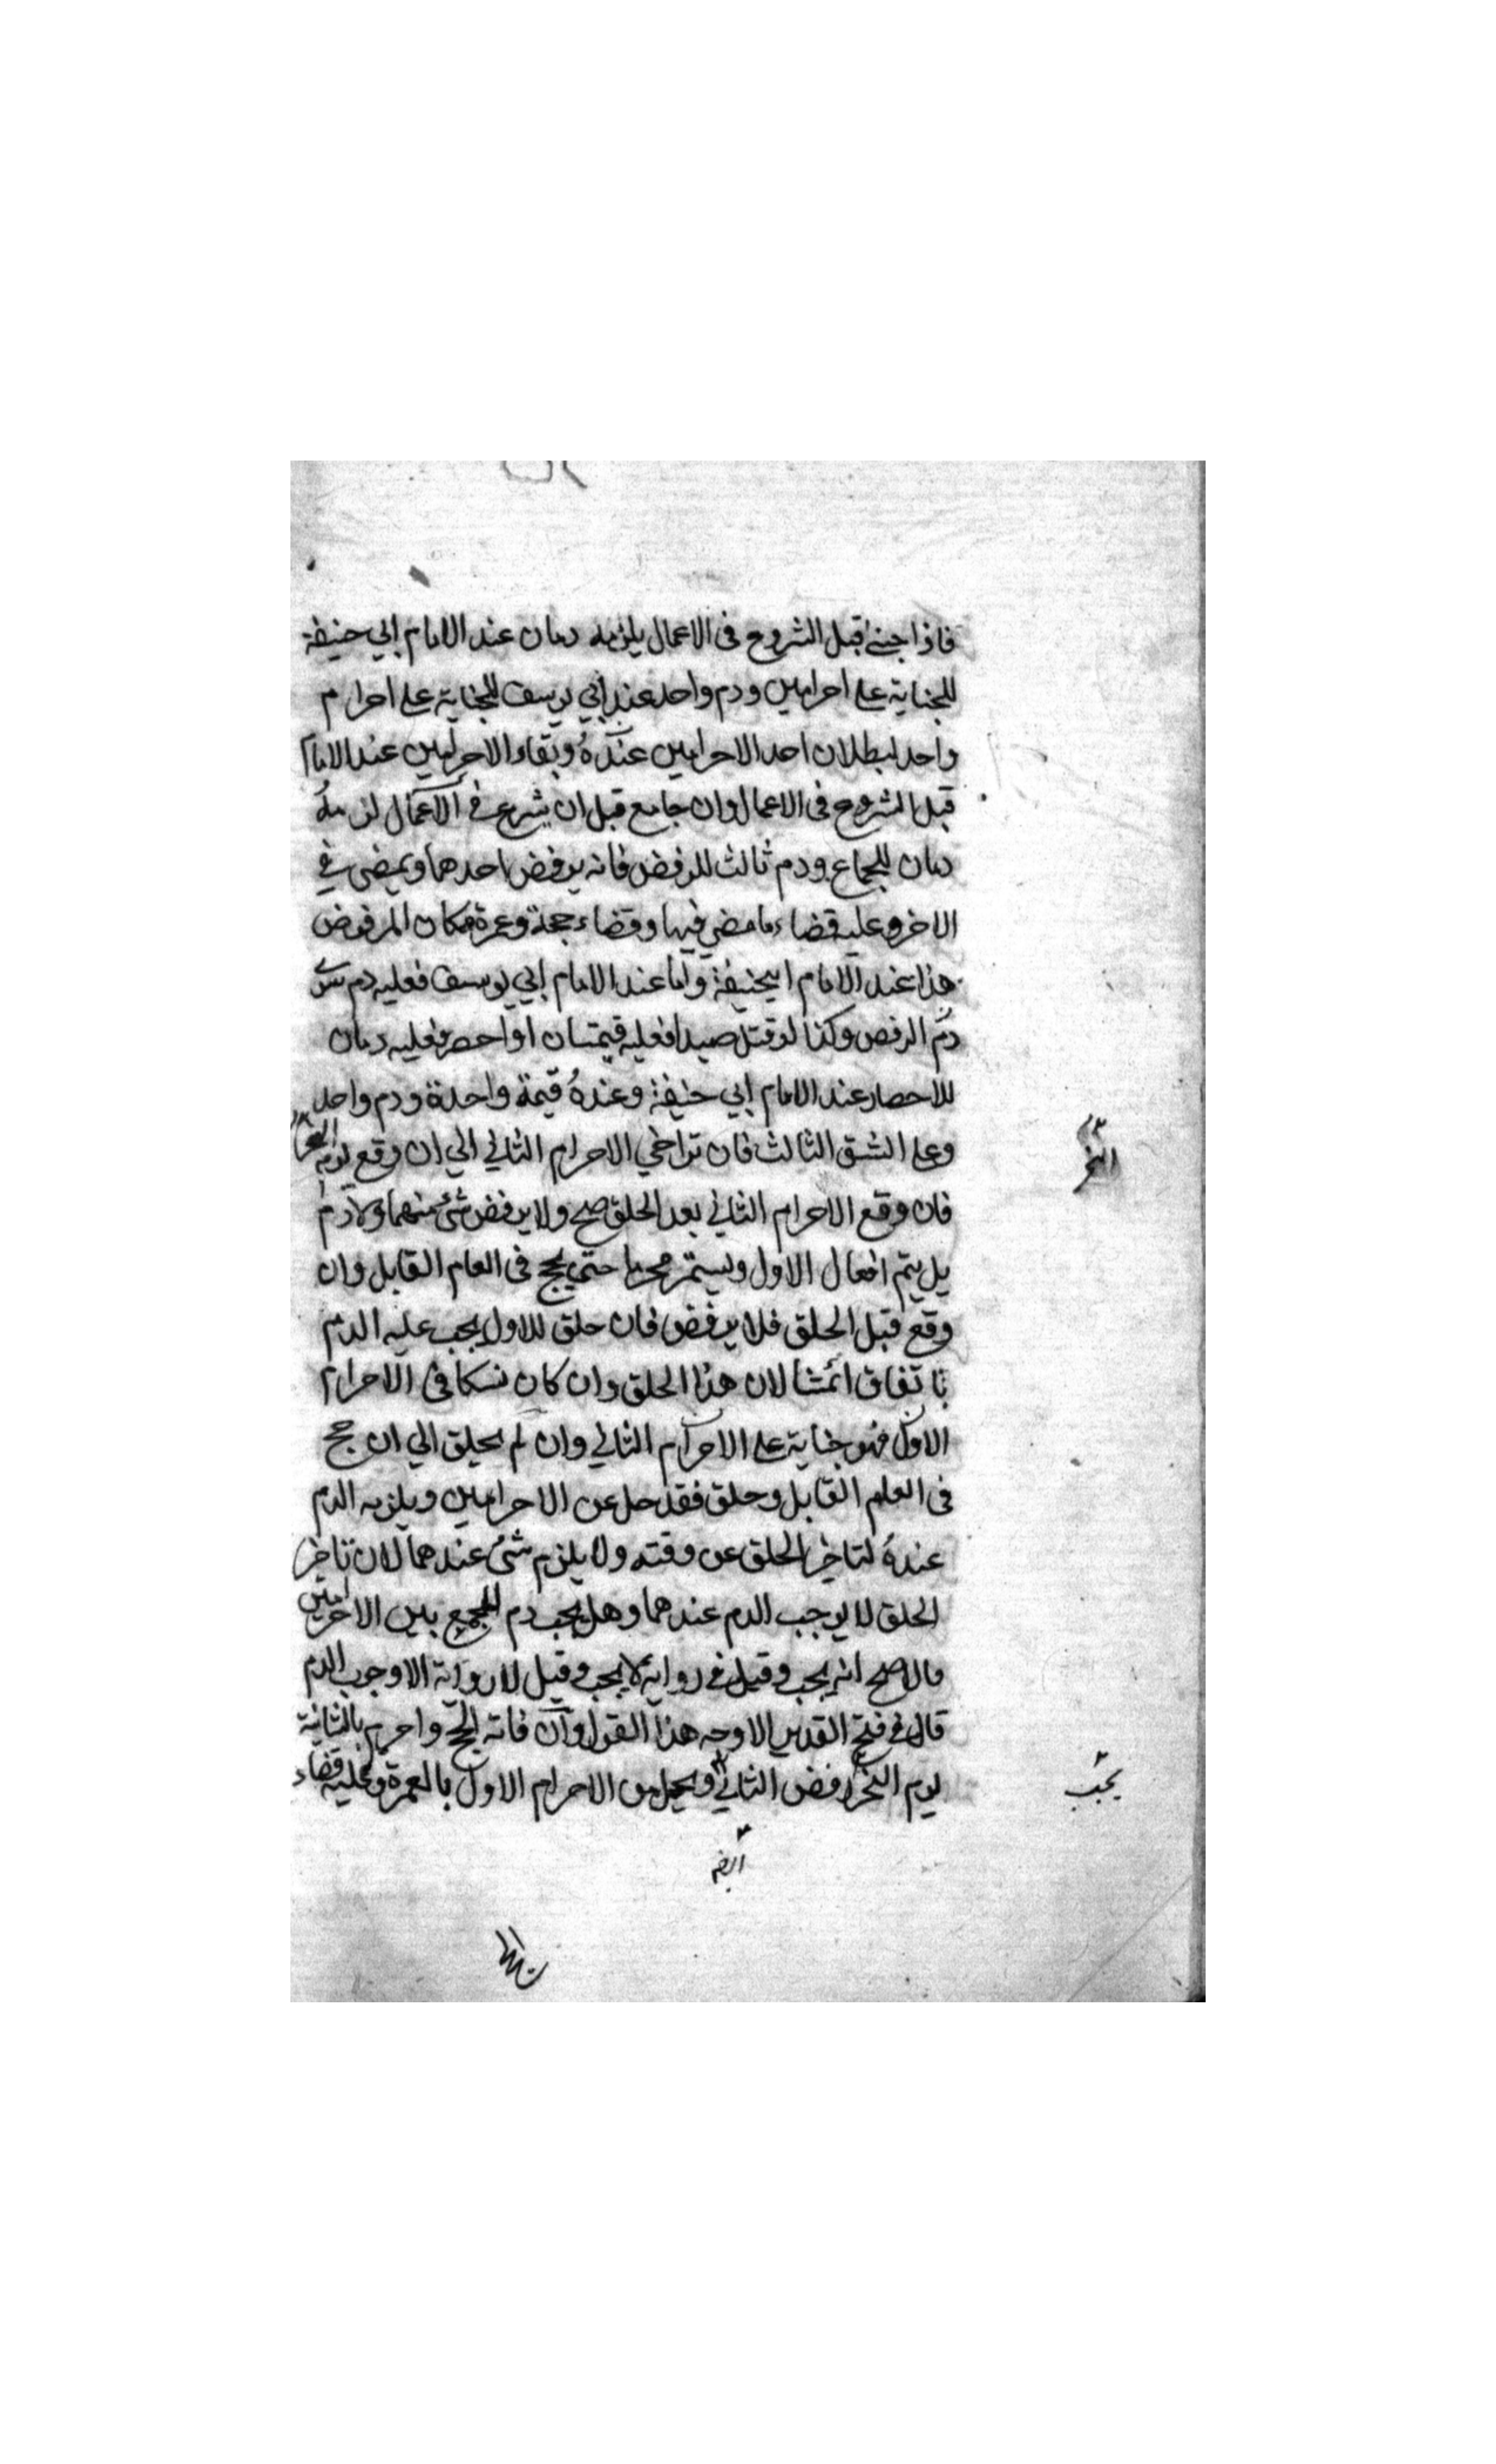 فاذا جنى قبل الشروع فى الاعمال يلزمه دمان عند الامام ابي حنيفة
للجناية على احرامين ودم واحد عند ابي يوسف للجناية على احرام
واحد لبطلان احد الاحرامين عنده وبقاء الاحرامين عند الامام
قبل الشروع فى الاعمال وان جامع قبل ان يشرع فى الاعمال لزمه
دمان للجماع ودم ثالث للرفض فانه يرفض احدهما ويمضى في
الاخر وعليه قضاء ما مضي فيها وقضاء حجة وعمرة مكان المرفوض
هذا عند الامام ابيحنيفة واما عند الامام ابي يوسف فعليه دم سوى
دم الرفض وكذا لو قتل صيدا فعليه قيمتان او احصر فعليه دمان
للاحصار عند الامام ابي حنيفة وعنده قيمة واحدة ودم واحد
وعلى الشق الثالث فان تراخي الاحرام الثاني الي ان وقع يوم النحر
النحر
فان وقع الاحرام الثاني بعد الحلق صح ولا يرفض شئ منهما ولا دم
بل يتم افعال الاول ويستمر محرما حتي يحج فى العام القابل وان
وقع قبل الحلق فلا يرفض فان حلق للاول يجب عليه الدم
باتفاق ائمتنا لان هذا الحلق وان كان نسكا فى الاحرام
الاول فهو جناية على الاحرام الثاني وان لم يحلق الي ان حج
فى العام القابل وحلق فقد حل عن الاحرامين ويلزمه الدم
عنده لتاخير الحلق عن وقته ولا يلزم شئ عندهما لان تاخير
الحلق لا يوجب الدم عندهما وهل يجب دم للجمع بين الاحرامين
فالاصح انه يجب وقيل فى رواية لا يجب وقيل لا رواية الا وجوب الدم
قال فى فتح القدير الاوجه هذا القول وان فاته الحج واحرم بالثانية
يوم النحر رفض الثاني ويحل من الاحرام الاول بالعمرة وعليه قضاء
يجب